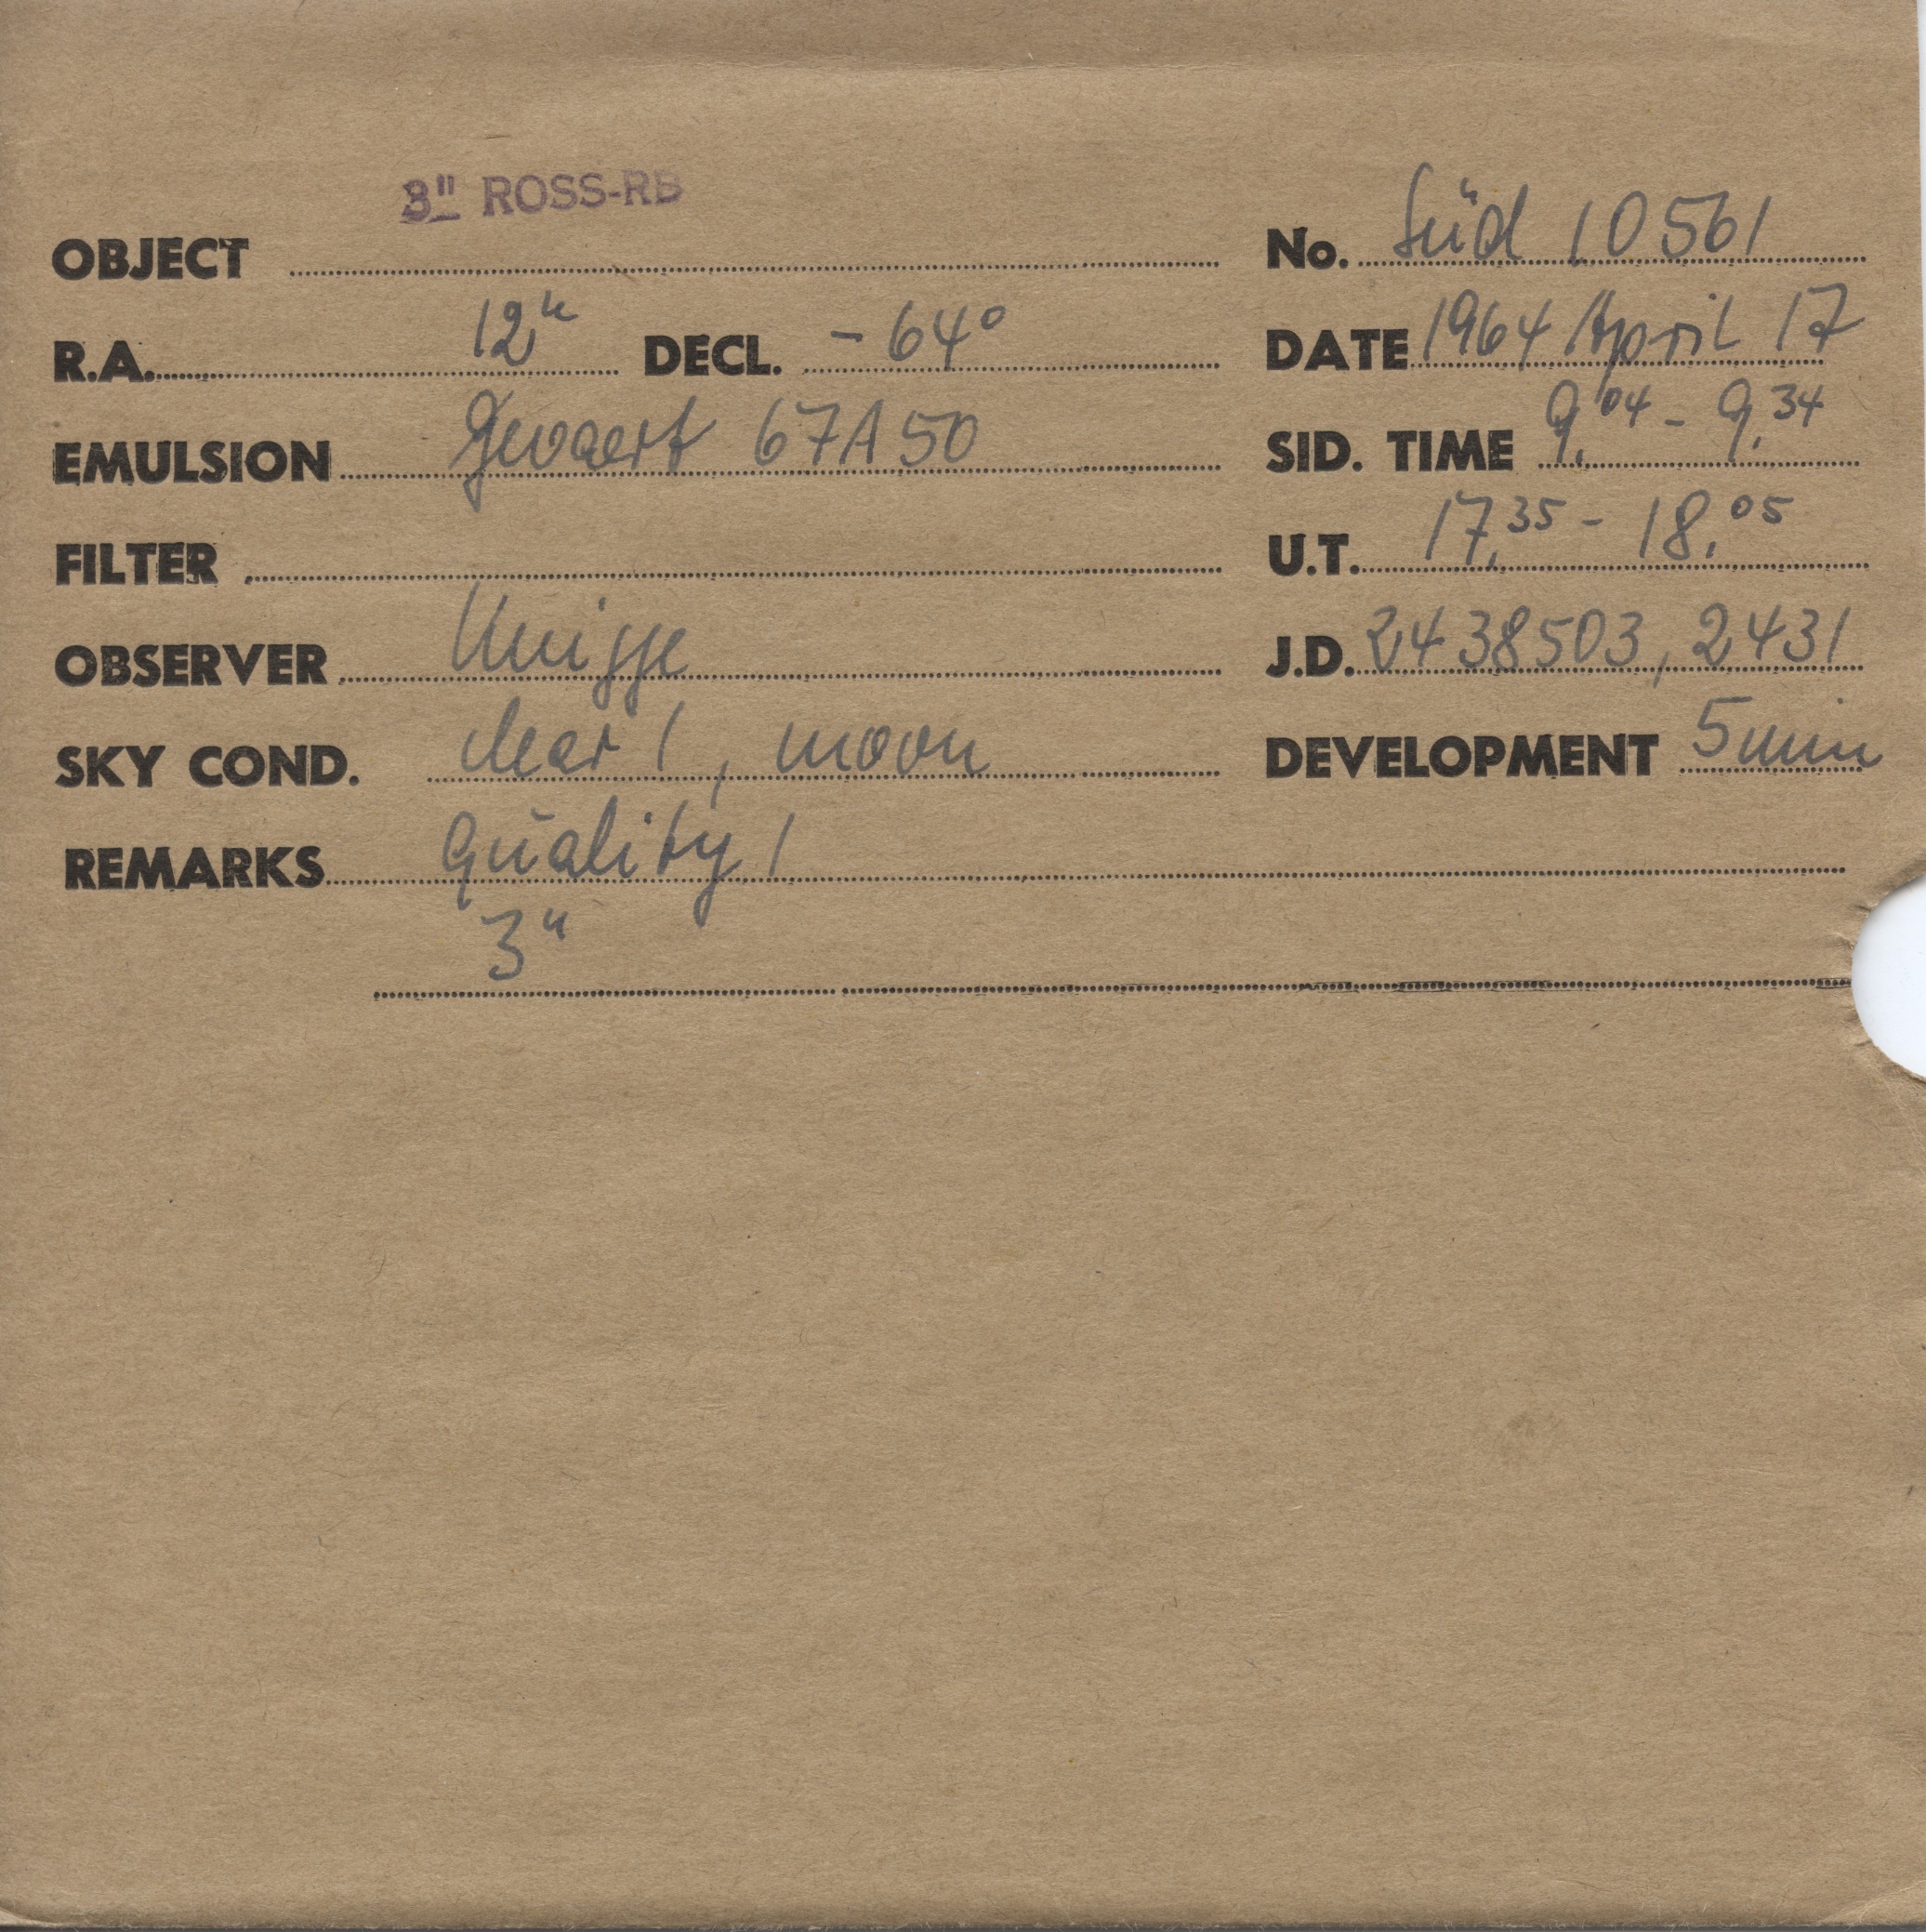 3" ROSS-RB
OBJECT No. Süd 10561
R.A. 12h DECL. -64° DATE 1964 April 17
EMULSION Gevaert 67A50 SID. TIME 9,04 - 9,34
FILTER U.T. 17,35 - 18,05
OBSERVER J.D. 2438503,2431
SKY COND. clear 1, moon DEVELOPMENT 5 min
REMARKS Quality 1
3"